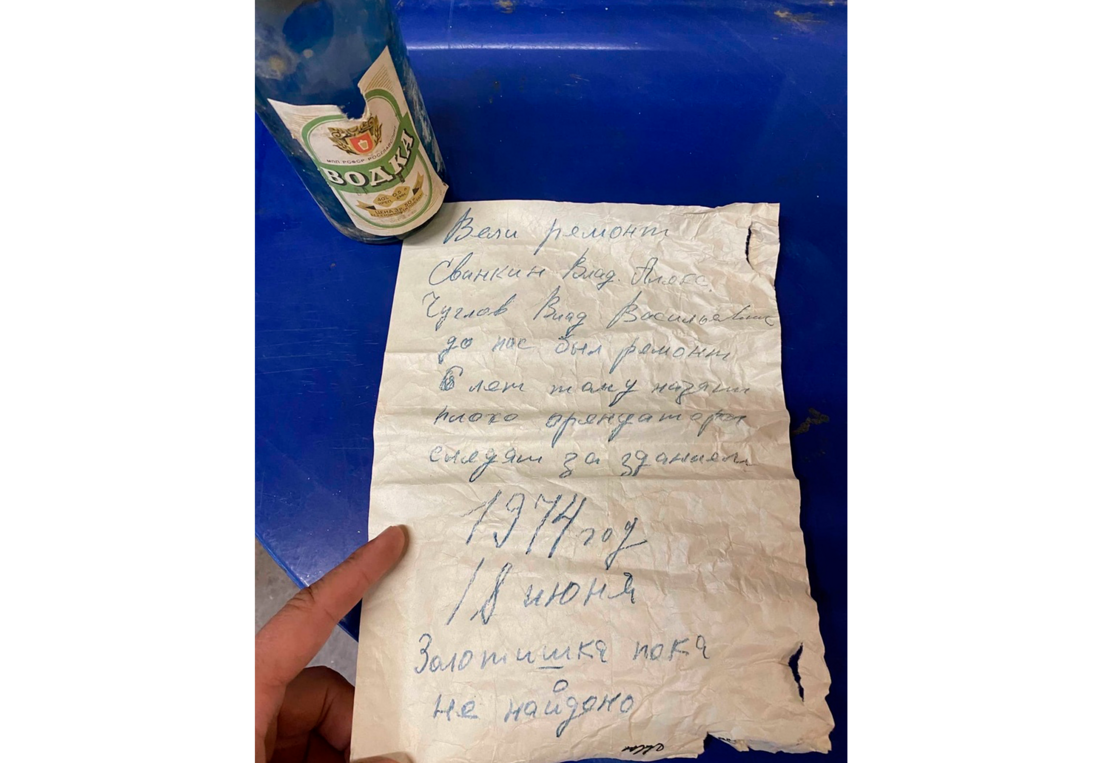 ВОДКА
Вели ремонт
Свинкин Влад. Алекс.
Чуглов Влад Васильевич
до нас был ремонт
6 лет тому назат
плохо арендатора
сыледят за зданием
1974 год
18 июня
Золотишка пока
не найдено